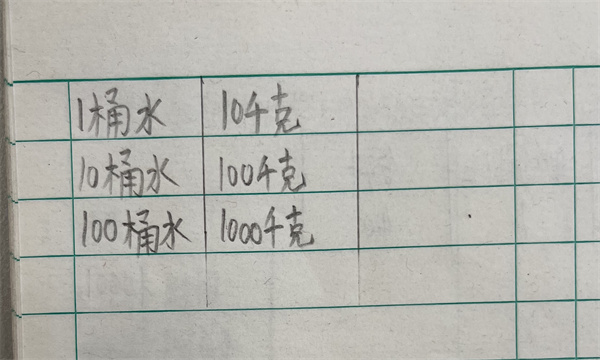 1桶水 10千克
10桶水 100千克
100桶水 1000千克